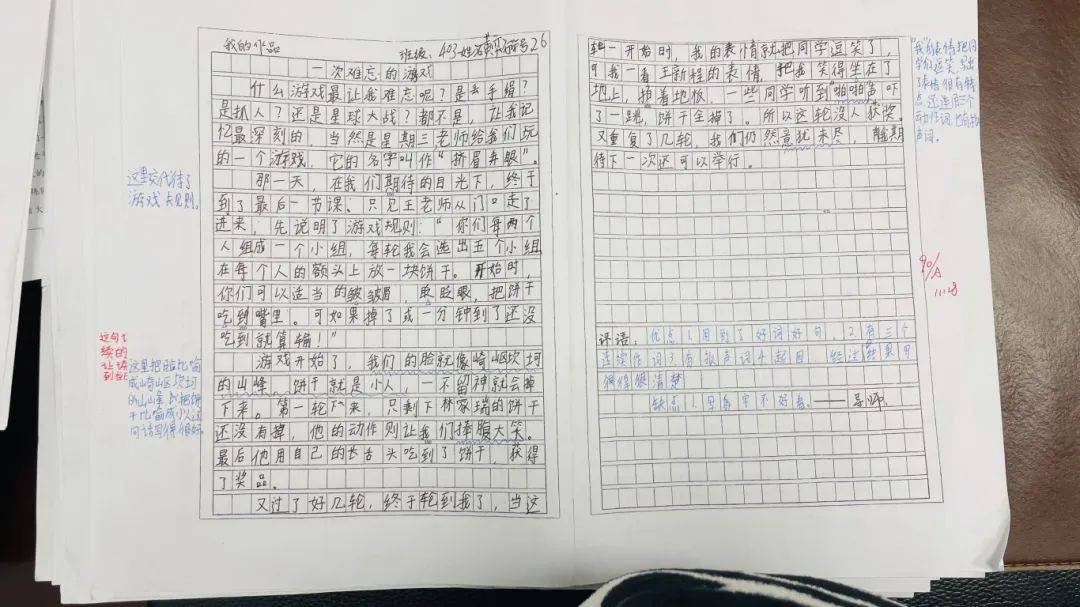 我的作品
班级:403 姓名 学号26
一次难忘的游戏
什么游戏最让我难忘呢?是丢手绢?
是抓人?还是星球大战?都不是,让我记
忆最深刻的,当然是星期三老师给我们玩
的一个游戏,它的名字叫作“挤眉弄眼”。
那一天,在我们期待的目光下,终于
到了最后一节课。只见王老师从门口走了
进来,先说明了游戏规则:“你们每两个
人组成一个小组,每轮我会选出五个小组
在每个人的额头上放一块饼干。开始时,
你们可以适当的皱皱眉,眨眨眼,把饼干
吃到嘴里。可如果掉了或一分钟到了还没
吃到就算输!”
游戏开始了,我们的脸就像崎岖坎坷
的山峰,饼干就是小人,一不留神就会掉
下来。第一轮下来,只剩下林家瑞的饼干
还没有掉,他的动作则让我们捧腹大笑。
最后他用自己的长舌头吃到了饼干,获得
了奖品。
又过了好几轮,终于轮到我了,当这
轮一开始时,我的表情就把同学逗笑了,
可我一看王新程的表情,把我笑得坐在了
地上,捶着地板,一些同学听到“啪啪”声吓
了一跳,饼干全掉了。所以这轮没人获奖。
又重复了几轮,我们仍然意犹未尽,都期
待下一次还可以举行。
这里交代了
游戏规则。
这里把脸比喻
成崎岖坎坷
的山峰,把饼
干比喻成小人这
句话写得很好
90/A
11.28
评语:优点1.用到了好词好句,2.有三个
连续作词3.有拟声词4.起因、经过、结果可
写得很清楚
缺点1.字写字不好看。——导师